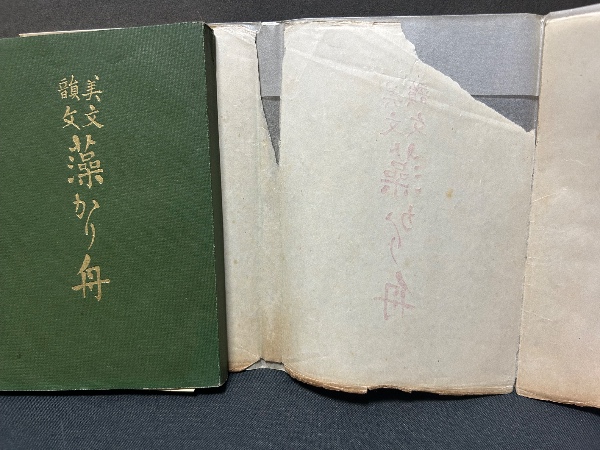 美文
韻文
藻かり舟
韻文
藻かり舟